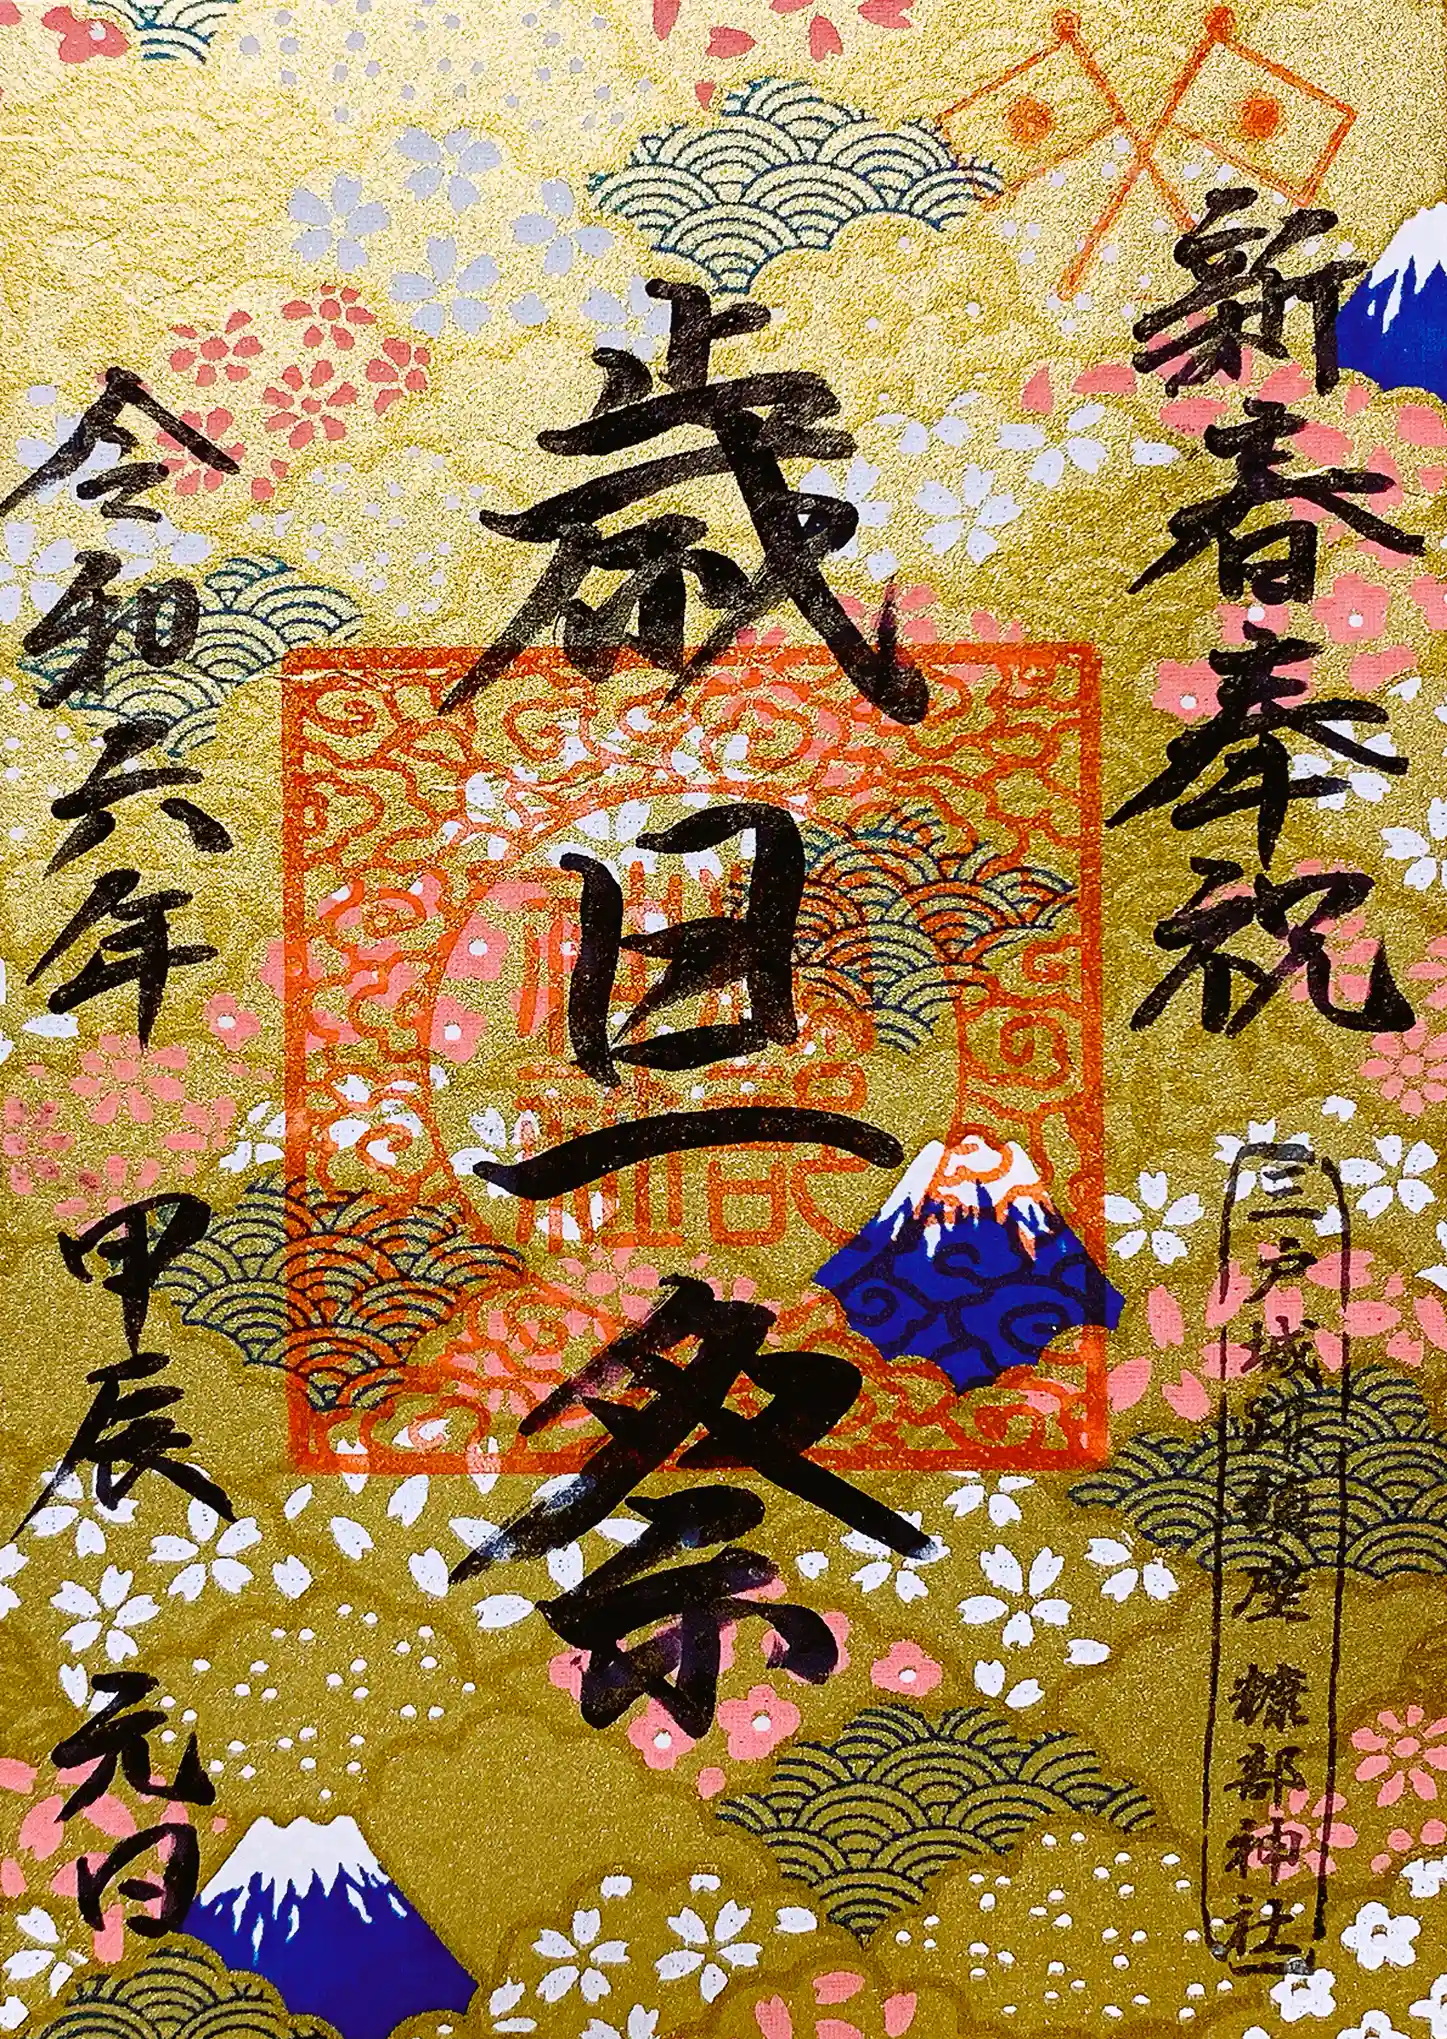 新春奉祝
三戸城跡鎮座 糠部神社
歳旦祭
令和六年
甲辰
元日